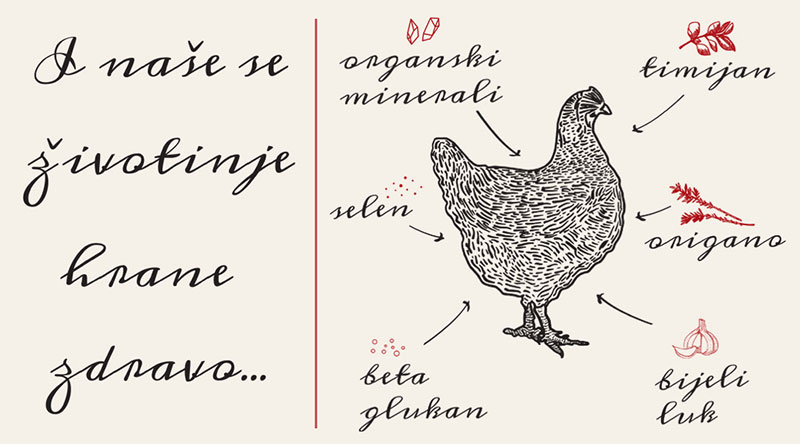 I naše se
životinje
hrane
zdravo...
organski
minerali
timijan
selen
origano
beta
glukan
bijeli
luk